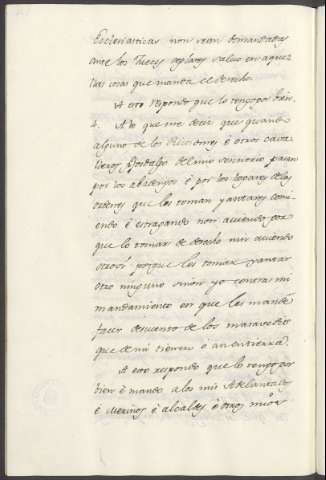 Eclesiasticas non sean demandadas
ante los Jueces seglares salvo en aque
llas cosas que manda el derecho.
A esto respondo que lo tengo por bien.
4. A lo que me decir que quando
alguno de los Ricos omes é otros cava
lleros fijosdalgo del mio sennorio pasan
por los abadengos é por los logares de las
ordenes que les toman yantares comi
endo é estragando non aviendo por
que lo tomar de derecho nin aviendo
otrosi porque les tomar yantar
otro ninguno sinon yo contra mi
mandamiento en que les mandé
facer descuento de los maravedis
que de mi tienen é an en tierra.
A esto respondo que lo tengo por
bien é mando a los mis Adelantados
é Merinos é alcaldes é otros mios